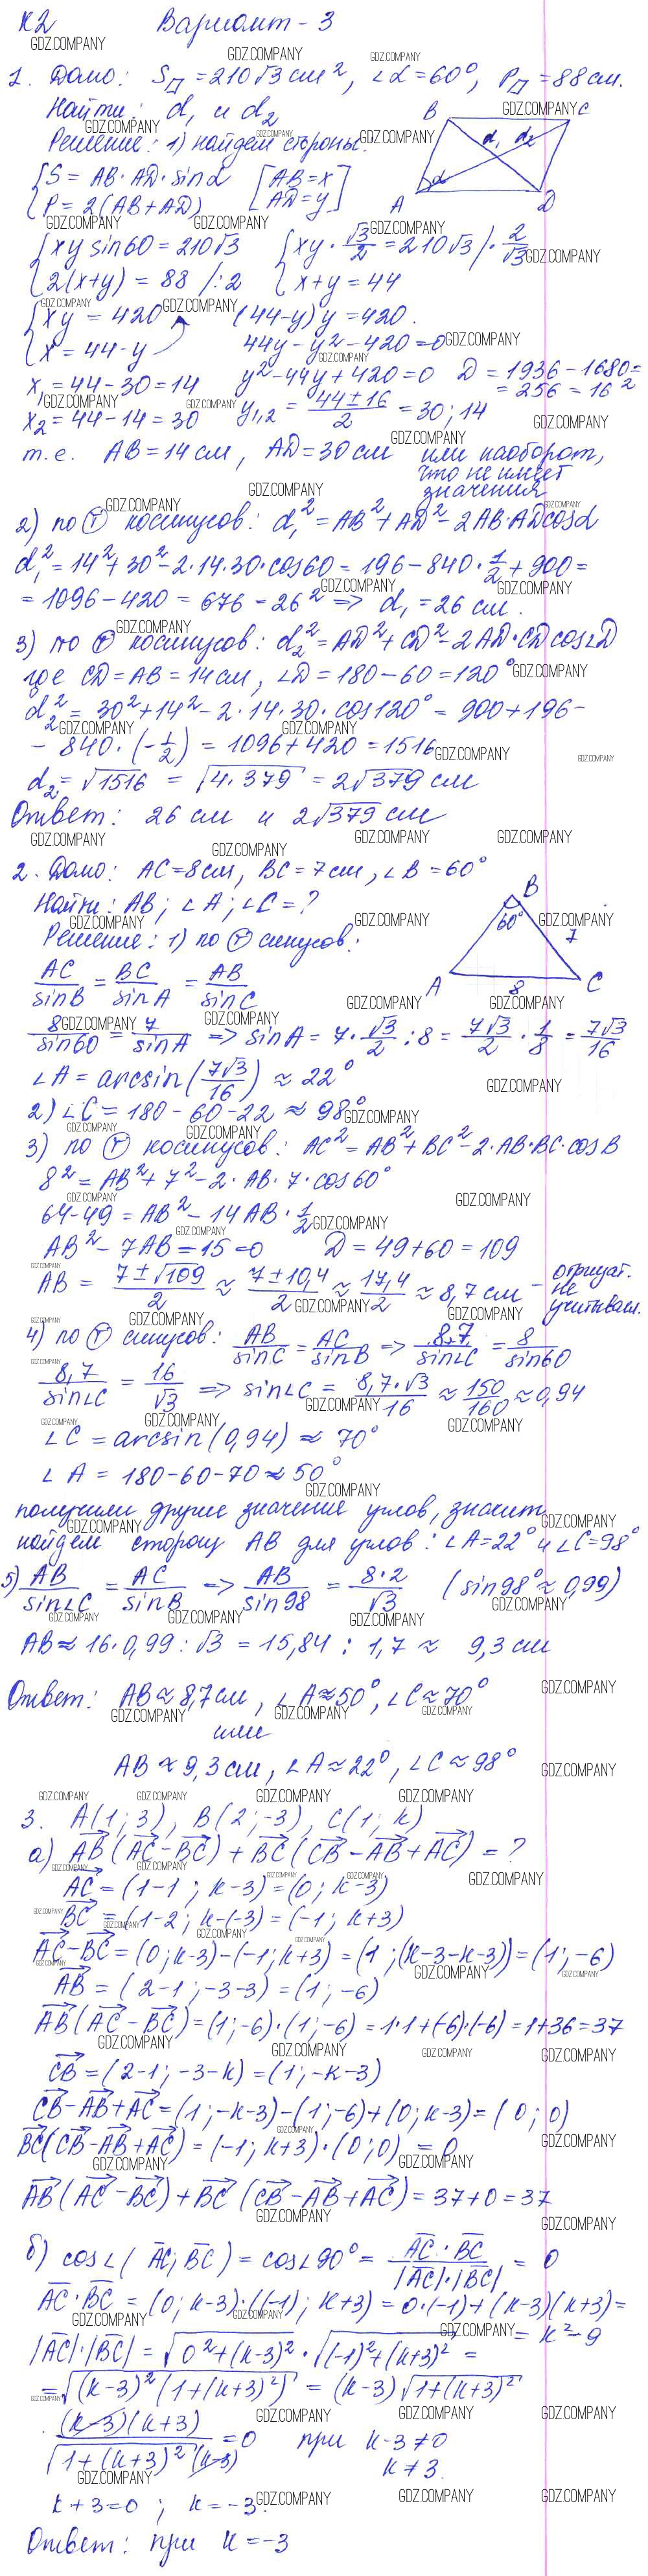 К2 Вариант - 3
1. Дано: S▱ = 210√3 см², ∠α = 60°, P▱ = 88 см.
Найти: d₁ и d₂
Решение: 1) найдем стороны:
B C
d₁ d₂
α
A D
{S = AB · AD · sin α [AB = x
{P = 2(AB + AD) AD = y]
{xy sin 60 = 210√3 {xy · √3/2 = 210√3 | · 2/√3
{2(x+y) = 88 /:2 {x + y = 44
{xy = 420 (44-y)y = 420.
{x = 44 - y 44y - y² - 420 = 0
x₁ = 44 - 30 = 14 y² - 44y + 420 = 0 D = 1936 - 1680 =
= 256 = 16²
x₂ = 44 - 14 = 30 y₁,₂ = (44 ± 16)/2 = 30; 14
т.е. AB = 14 см, AD = 30 см или наоборот,
что не имеет
значения
2) по Ⓣ косинусов: d₁² = AB² + AD² - 2AB·AD cos α
d₁² = 14² + 30² - 2·14·30·cos 60 = 196 - 840 · 1/2 + 900 =
= 1096 - 420 = 676 = 26² => d₁ = 26 см.
3) по Ⓣ косинусов: d₂² = AD² + CD² - 2AD·CD cos∠D
где CD = AB = 14 см, ∠D = 180 - 60 = 120°
d₂² = 30² + 14² - 2·14·30·cos 120° = 900 + 196 -
- 840 · (-1/2) = 1096 + 420 = 1516
d₂ = √1516 = √4·379 = 2√379 см
Ответ: 26 см и 2√379 см
2. Дано: AC = 8 см, BC = 7 см, ∠B = 60°
Найти: AB; ∠A; ∠C = ?
Решение: 1) по Ⓣ синусов:
B
60°
7
A 8 C
AC/sin B = BC/sin A = AB/sin C
8/sin 60 = 7/sin A => sin A = 7 · √3/2 : 8 = 7√3/2 · 1/8 = 7√3/16
∠A = arcsin(7√3/16) ≈ 22°
2) ∠C = 180 - 60 - 22 ≈ 98°
3) по Ⓣ косинусов: AC² = AB² + BC² - 2·AB·BC·cos B
8² = AB² + 7² - 2·AB·7·cos 60°
64 - 49 = AB² - 14AB · 1/2
AB² - 7AB - 15 = 0 D = 49 + 60 = 109
AB = (7 ± √109)/2 ≈ (7 ± 10,4)/2 ≈ 17,4/2 ≈ 8,7 см - отрицат.
не
учитываем.
4) по Ⓣ синусов: AB/sin C = AC/sin B => 8,7/sin∠C = 8/sin 60
8,7/sin∠C = 16/√3 => sin∠C = 8,7·√3/16 ≈ 150/160 ≈ 0,94
∠C = arcsin(0,94) ≈ 70°
∠A = 180 - 60 - 70 ≈ 50°
получили другие значение углов, значит
найдем сторону AB для углов: ∠A = 22° и ∠C = 98°
5) AB/sin∠C = AC/sin B => AB/sin 98 = 8·2/√3 (sin 98° ≈ 0,99)
AB ≈ 16·0,99 : √3 = 15,84 : 1,7 ≈ 9,3 см
Ответ: AB ≈ 8,7 см, ∠A ≈ 50°, ∠C ≈ 70°
или
AB ≈ 9,3 см, ∠A ≈ 22°, ∠C ≈ 98°
3. A(1; 3), B(2; -3), C(1; k)
а) AB(AC - BC) + BC(CB - AB + AC) = ?
AC = (1-1; k-3) = (0; k-3)
BC = (1-2; k-(-3)) = (-1; k+3)
AC - BC = (0; k-3) - (-1; k+3) = (1; (k-3-k-3)) = (1; -6)
AB = (2-1; -3-3) = (1; -6)
AB(AC - BC) = (1; -6)·(1; -6) = 1·1 + (-6)·(-6) = 1 + 36 = 37
CB = (2-1; -3-k) = (1; -k-3)
CB - AB + AC = (1; -k-3) - (1; -6) + (0; k-3) = (0; 0)
BC(CB - AB + AC) = (-1; k+3)·(0; 0) = 0
AB(AC - BC) + BC(CB - AB + AC) = 37 + 0 = 37
б) cos∠(AC; BC) = cos∠90° = AC · BC/|AC|·|BC| = 0
AC · BC = (0; k-3)·((-1); k+3) = 0·(-1) + (k-3)(k+3) =
= k² - 9
|AC|·|BC| = √0² + (k-3)² · √(-1)² + (k+3)² =
= √(k-3)²(1 + (k+3)²) = (k-3)√1 + (k+3)²
(k-3)(k+3)/√1 + (k+3)² (k-3) = 0 при k - 3 ≠ 0
k ≠ 3
k + 3 = 0; k = -3.
Ответ: при k = -3
GDZ.COMPANY